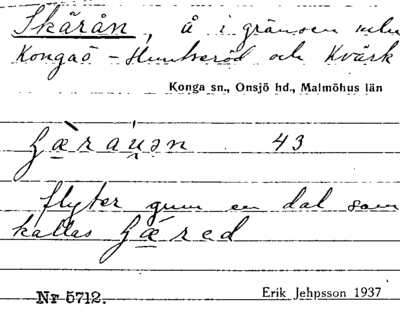 Skärån, å i gränsen
Kongaö - Huntseröd och Kvärk
Konga sn., Onsjö hd., Malmöhus län
43
flyter genom en dal som
kallas
Nr 5712.
Erik Jehpsson 1937